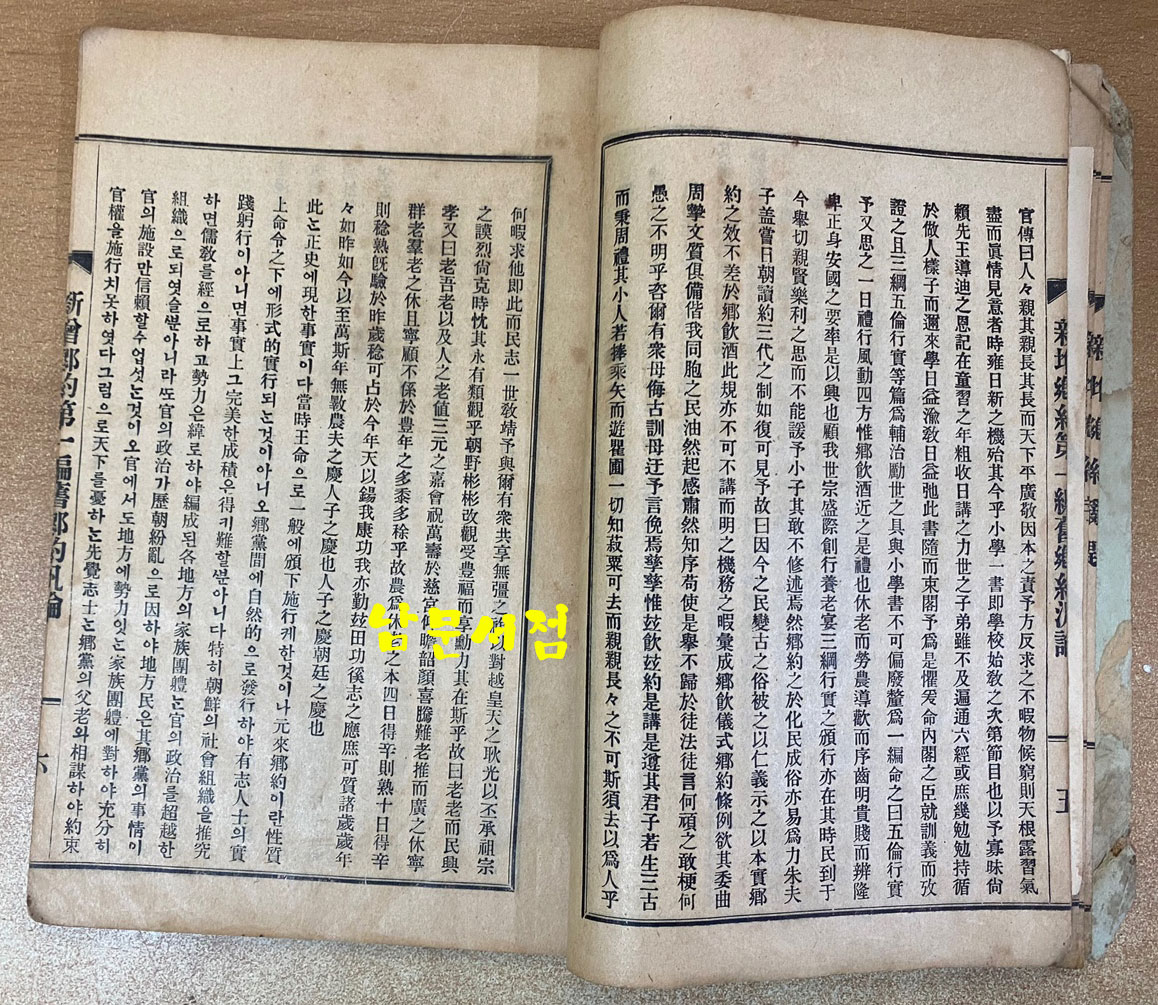 官傳曰人々親其親長其長而天下平廣敬因本之責予方反求之不暇物候窮則天根露習氣
盡而眞情見意者時雍日新之機殆其今乎小學一書即學校始敎之次第節目也以予寡昧尙
賴先王導迪之恩記在童習之年粗收日講之力世之子弟雖不及遍通六經或庶幾勉勉持循
於做人樣子而邇來學日益渝敎日益弛此書隨而束閣予爲是懼爰命內閣之臣就訓義而攷
證之且三綱五倫行實等篇爲輔治勵世之具與小學書不可偏廢釐爲一編命之曰五倫行實
予又思之一日禮行風動四方惟鄕飮酒近之是禮也休老而勞農導歡而序齒明貴賤而辨隆
正身安國之要率是以興也顧我世宗盛際創行養老宴三綱行實之頒行亦在其時民到于
今擧切親賢樂利之思而不能諼予小子其敢不修述焉然鄕約之於化民成俗亦易爲力朱夫
子盖嘗日朝讀約三代之制如復可見予故曰因今之民變古之俗被之以仁義示之以本實鄕
約之效不差於鄕飮酒此規亦不可不講而明之機務之暇彙成鄕飮儀式鄕約條例欲其委曲
周摯文質俱備偕我同胞之民油然起感肅然知序苟使是擧不歸於徒法徒言何頑之敢梗何
愚之不明乎咨爾有衆母侮古訓母迂予言俛焉孳孳惟玆飮玆約是講是遵其君子若生三古
而秉周禮其小人若捧乘矢而遊瞿圃一切知菽粟可去而親親長々之不可斯須去以爲人乎
五
何暇求他即此而民志一世敎靖予與爾有衆共享無彊之以對越皇天之耿光以丕承祖宗
之謨烈尙克時忱其永有類觀乎朝野彬彬改觀受豊福而享勳力其在斯乎故曰老老而民興
孝又曰老吾老以及人之老値三元之嘉會祝萬壽於慈宮仰瞻韶顔喜騰難老推而廣之休寧
群老羣老之休且寧顧不係於豊年之多黍多稌乎故農爲休老之本四日得辛則熟十日得辛
則稔熟旣驗於昨歲稔可占於今年天以錫我康功我亦勤玆田功徯志之應庶可質諸歲歲年
々如昨如今以至萬斯年無斁農夫之慶人子之慶也人子之慶朝廷之慶也
此는正史에現한事實이다當時王命으로一般에頒下施行케한것이나元來鄕約이란性質
上命令之下에形式的實行되는것이아니오鄕黨間에自然的으로發行하야有志人士의實
踐躬行이아니면事實上그完美한成積우得키難할뿐아니다特히朝鮮의社會組織을推究
하면儒敎를經으로하고勢力은緯로하야編成된各地方의家族團體는官의政治를超越한
組織으로되엿슬뿐아니라또官의政治가歷朝紛亂으로因하야地方民은其鄕黨의事情이
官의施設만信賴할수업섯는것이오官에서도地方에勢力잇는家族團體에對하야充分히
官權을施行치못하엿다그럼으로天下를憂하는先覺志士는鄕黨의父老와相謀하야約束
新增鄕約第一編舊鄕約汎論
六
남문서점